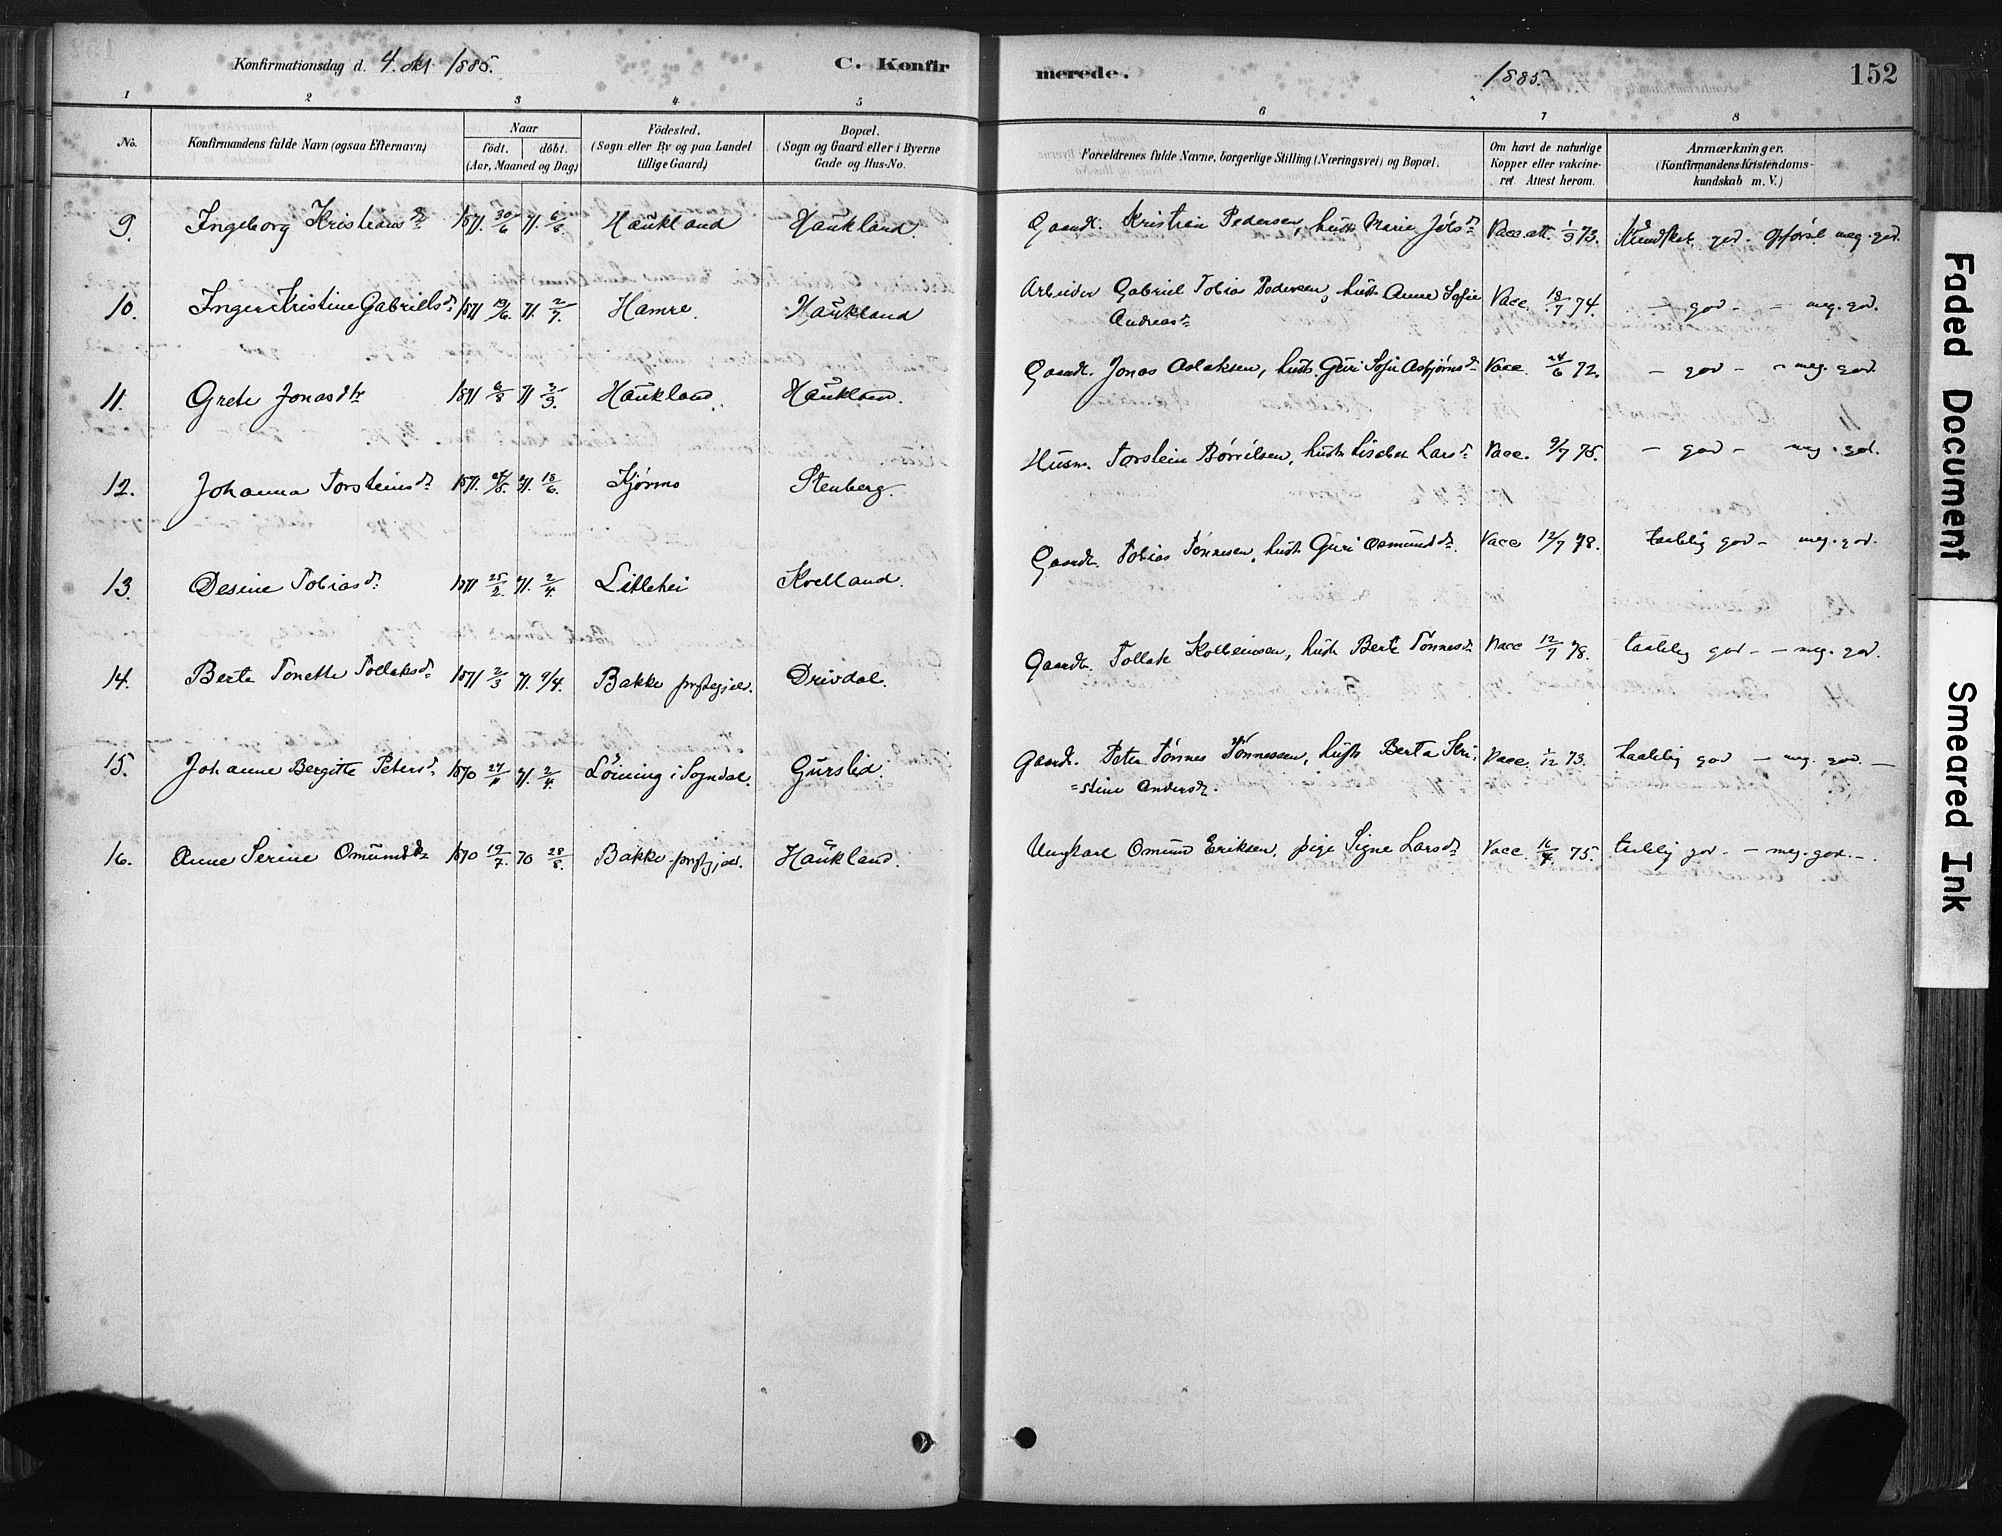 Konfirmationsdag d. 4. Okt 1885. C. Konfirmerede. 1885. 152
1 2 3 4 5 6 7 8
No. Konfirmandens fulde Navn (ogsaa Efternavn) Naar födt. döbt. (Aar, Maaned og Dag) Födested. (Sogn eller By og paa Landet tillige Gaard) Bopæl. (Sogn og Gaard eller i Byerne Gade og Hus-No. Forældrenes fulde Navne, borgerlige Stilling (Næringsvei) og Bopæl. Om havt de naturlige Kopper eller vakcineret Attest herom. Anmærkninger. (Konfirmandens Kristendomskundskab m. V.)
9. Ingeborg Kristiansd. 1871. 30/6 71. 6/8 Haukland Haukland. Gaardr. Kristian Pedersen, hust. Marie Jörsd. Vacc. att. 1/9 73. Kundskab god. Opförsel meg. god.
10. Inger Kristine Gabrielsd. 1871 19/6. 71. 2/7. Hamre. Haukland Arbeider Gabriel Tobias Pedersen, hust. Anne Sofie Andreasd. Vacc. 18/7 74. - god - - meg. god.
11. Grete Jonasdtr 1871 6/8 71 3/9. Haukland. Haukland. Gaardr. Jonas Aslaksen, hust. Guri Sofie Asbjørnsd. Vacc. 24/6 72. - god - - meg. god.
12. Johanna Torsteinsd. 1871. 71. 18/6. Kjørmo Stenberg. Husm. Torstein Børrilsen, hust. Lisabet Larsd. Vacc. 9/7 75. - god - meg. god.
13. Desine Tobiasd. 1871 25/2. 71. 2/4. Litlehei Kvelland. Gaardr. Tobias Tønnesen, hust. Guri Osmundsd. Vacc 12/7 78. taalelig god - meg. god.
14. Berte Tonette Tollaksd. 1871 2/3 71. 9/4. Bakke prstegjeld. Drivdal. Gaardr. Tollak Kolbeinsen, hust. Berte Tønnesd. Vacc 12/7 78. taalelig god - - meg. god.
15. Johanne Bergitte Petersd. 1870 27/11 71. 2/4. Löining i Sogndal. Gursled. Gaardr. Peter Tönnes Tönnessen, hust. Berta Kristine Andersd. Vacc. 1/12 73. taalelig god - meg. god. -
16. Anne Serine Omundsd. 1870 19/7. 70 28/8. Bakke prstgjeld. Haukland. Ungkarl Omund Eriksen, pige Signe Larsd. Vacc. 16/4 75. taalelig god. - meg. god. -
Faded Document
Smeared Ink